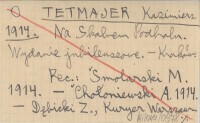 TETMAJER Kazimierz
1914. Na Skalnem Podhalu.
Wydanie jubileuszowe. - Kraków
Rec.: Smolarski M.
1914. - Chołoniewski A. 1914.
- Dębicki Z., Kuryer Warszaw.